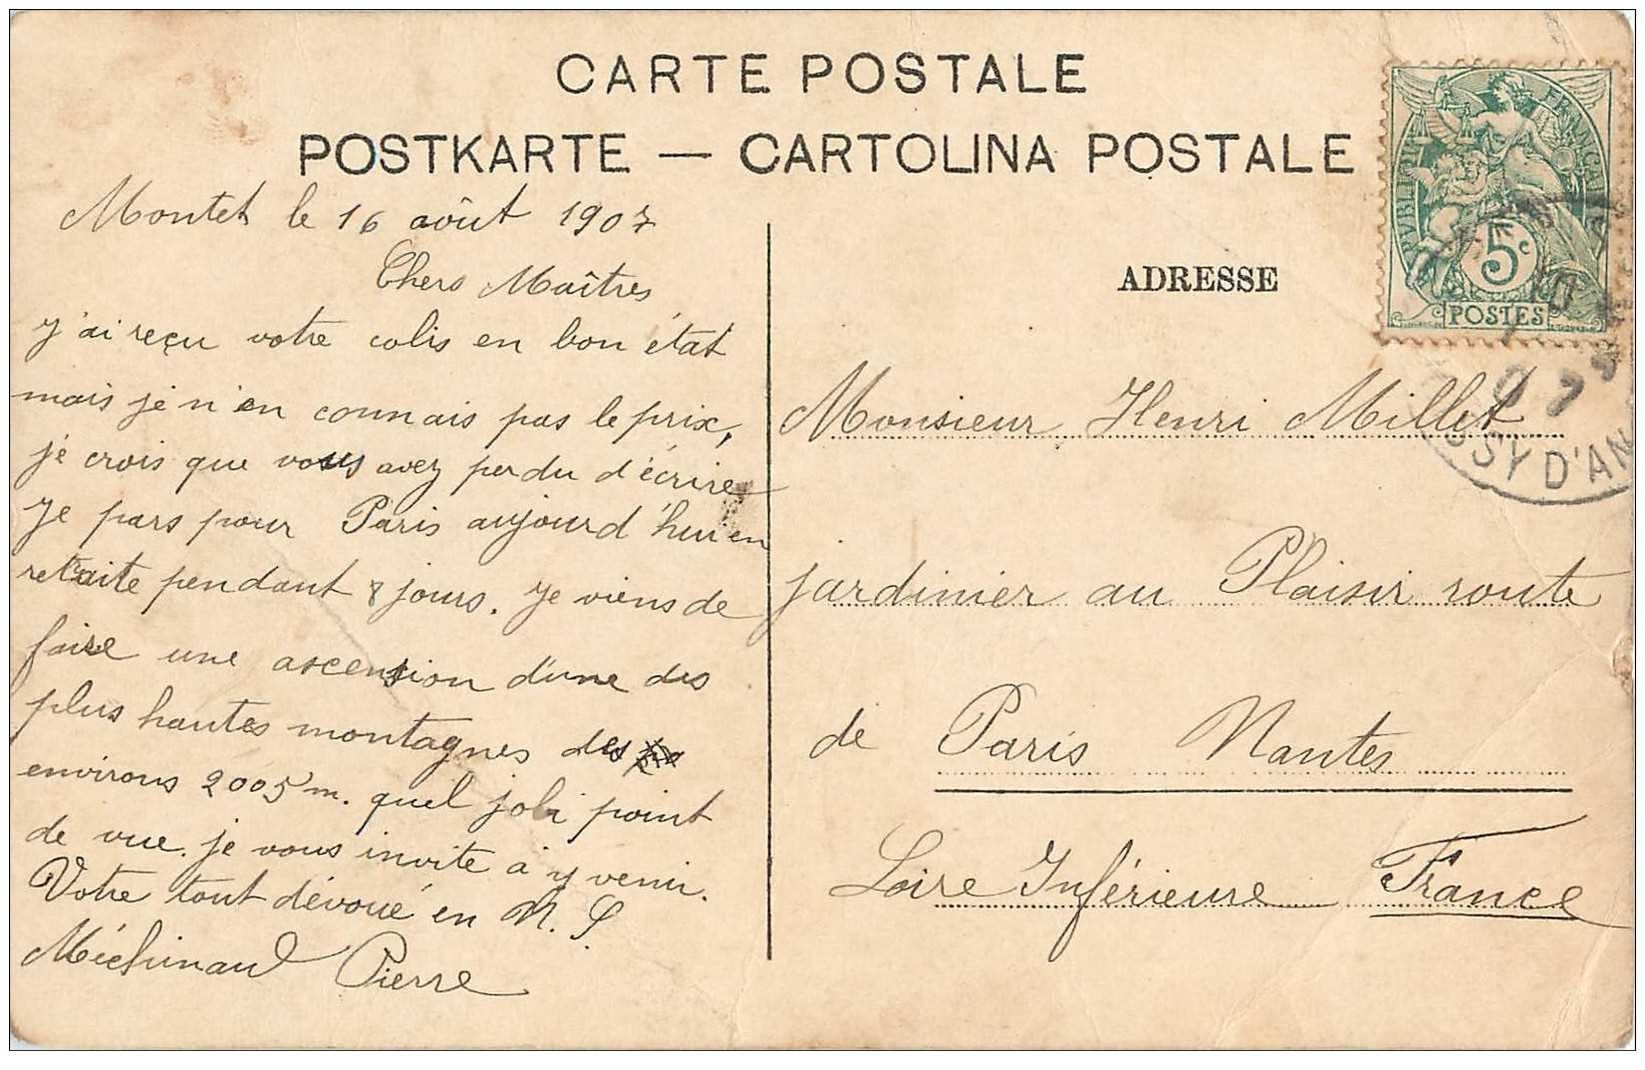 CARTE POSTALE
POSTKARTE — CARTOLINA POSTALE
Montet le 16 août 1907
Chers Maîtres
J'ai reçu votre colis en bon état
mais je n'en connais pas le prix,
je crois que vous avez perdu d'écrire
Je pars pour Paris aujourd'hui en
retraite pendant 8 jours. Je viens de
faire une ascension d'une des
plus hautes montagnes des
environs 2005 m. quel joli point
de vue. je vous invite à y venir.
Votre tout dévoué en N. S.
Méchinaud Pierre
RÉPUBLIQUE FRANÇAISE
5c
POSTES
07
SY D'AN
ADRESSE
Monsieur Henri Millet
jardinier au Plaisir route
de Paris Nantes
Loire Inférieure France